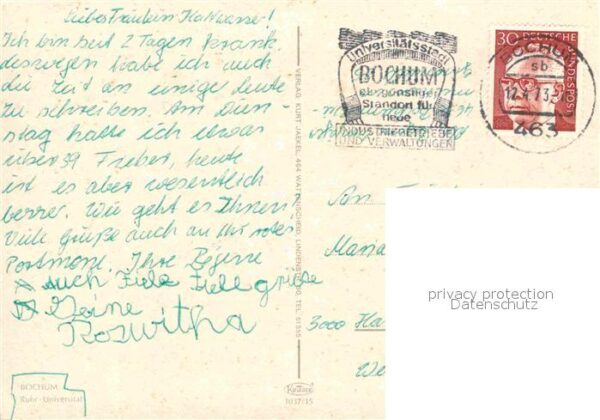 Liebes Fräulein Kaltwasser!
Ich bin seit 2 Tagen krank
deswegen habe ich auch
die Zeit an einige Leute
zu schreiben. Am Dien-
stag hatte ich etwas
über 39 Fieber, heute
ist es aber wesentlich
besser. Wie geht es Ihnen?
Viele Grüße auch an Ihr rotes
Portmone. Ihre
Auch Fiele Fiele grüße
Deine
Roswitha
BOCHUM
Ruhr-Universität
VERLAG KURT JAEKEL, 464 WATTENSCHEID, LINDENSTR. TEL. 51355
Universitätsstadt
BOCHUM
ein günstiger
Standort für
neue
INDUSTRIEBETRIEBE
UND VERWALTUNGEN
30 DEUTSCHE
BUNDESPOST
BOCHUM
sb
12.4.73
463
An
3000 Ha
We
privacy protection
Datenschutz
1037/15